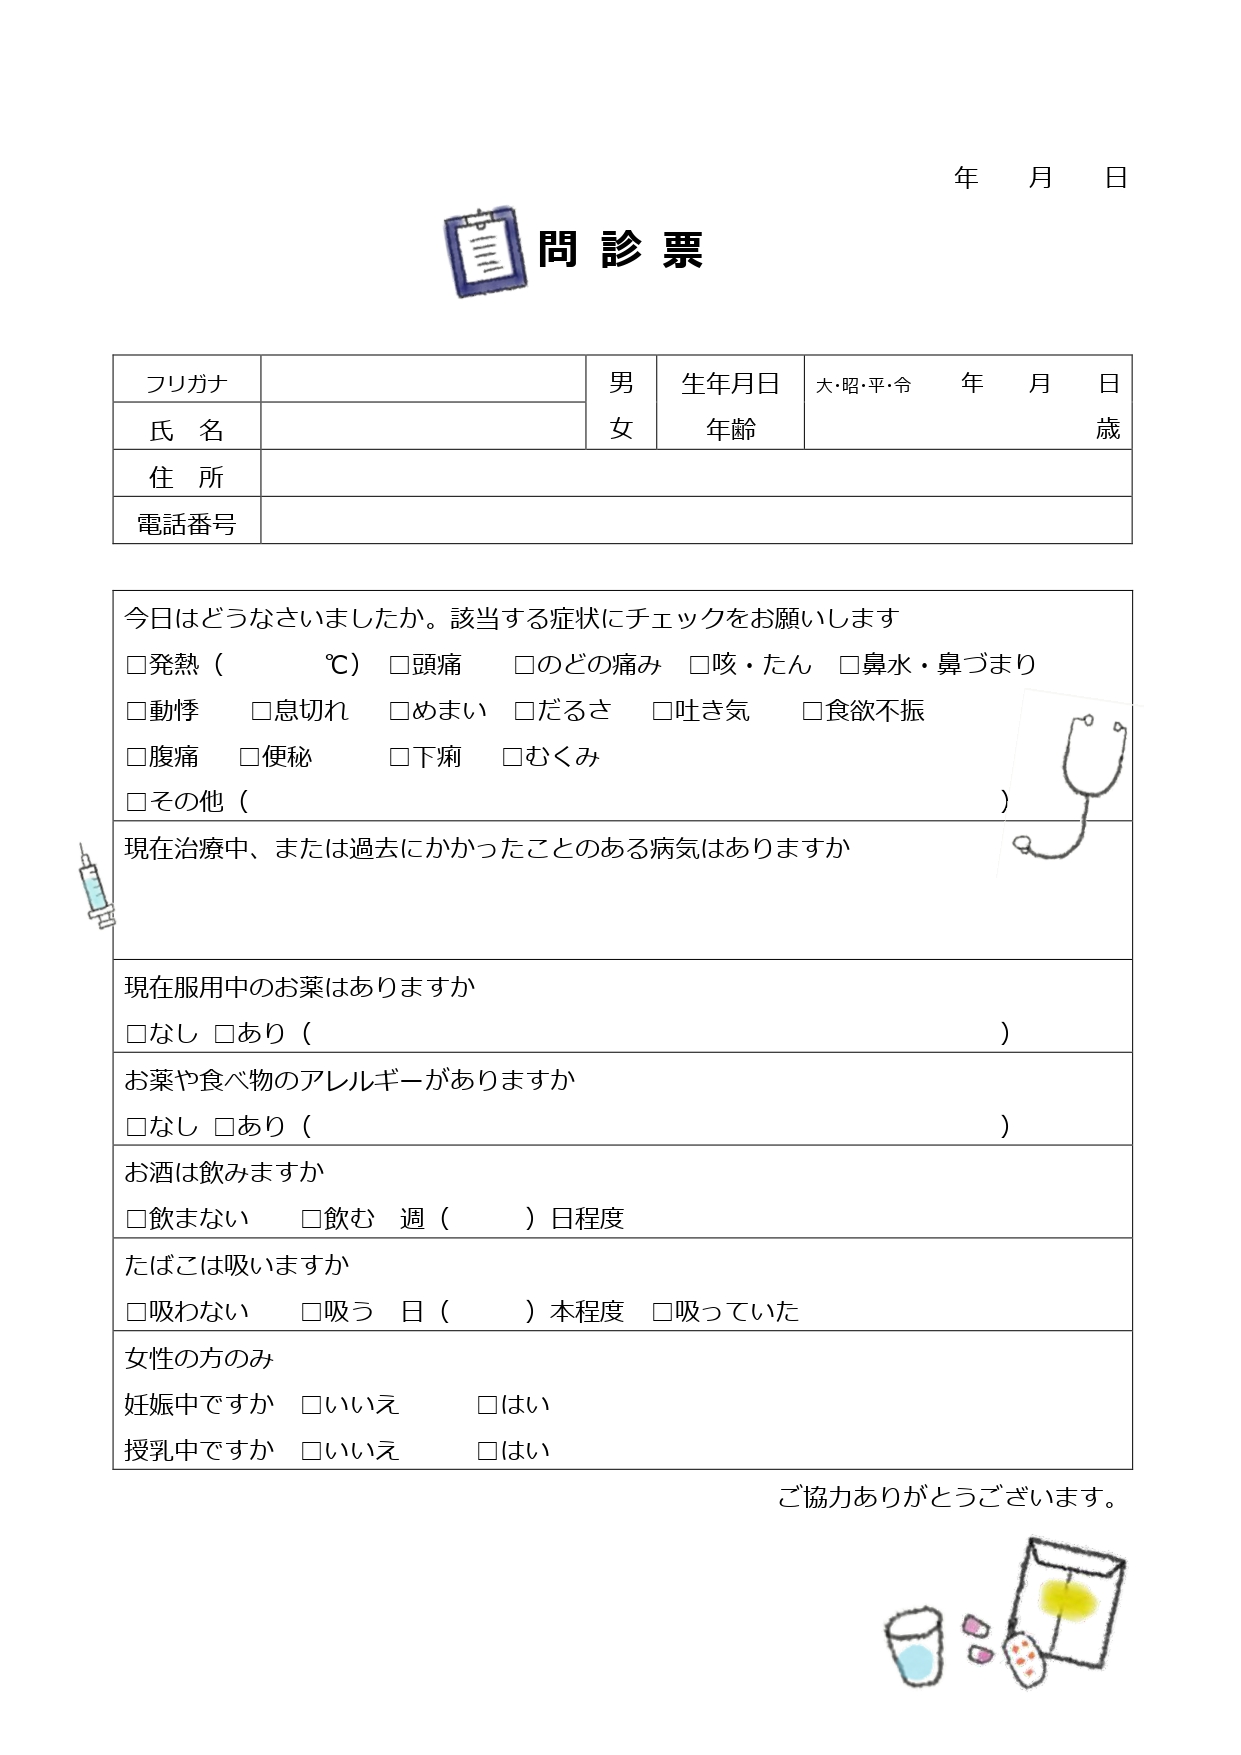 年　　月　　日
問 診 票
フリガナ　男　生年月日　大・昭・平・令　　年　　月　　日
氏　名　女　年齢　歳
住　所
電話番号
今日はどうなさいましたか。該当する症状にチェックをお願いします
□発熱（　　　　℃）　□頭痛　　□のどの痛み　□咳・たん　□鼻水・鼻づまり
□動悸　　□息切れ　□めまい　□だるさ　□吐き気　　□食欲不振
□腹痛　□便秘　　　□下痢　□むくみ
□その他（　　　　　　　　　　　　　　　　　　　　　　　　　　　　　　）
現在治療中、または過去にかかったことのある病気はありますか
現在服用中のお薬はありますか
□なし □あり（　　　　　　　　　　　　　　　　　　　　　　　　　　　）
お薬や食べ物のアレルギーがありますか
□なし □あり（　　　　　　　　　　　　　　　　　　　　　　　　　　　）
お酒は飲みますか
□飲まない　　□飲む　週（　　　）日程度
たばこは吸いますか
□吸わない　　□吸う　日（　　　）本程度　□吸っていた
女性の方のみ
妊娠中ですか　□いいえ　　　□はい
授乳中ですか　□いいえ　　　□はい
ご協力ありがとうございます。